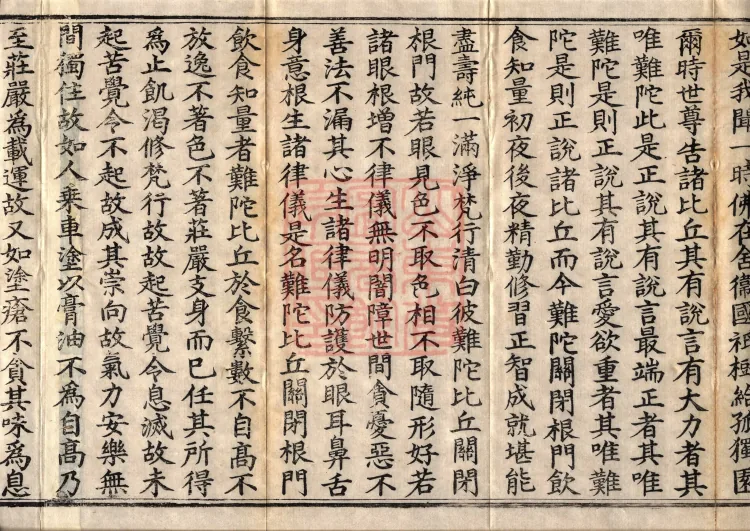 如是我聞一時佛在舍衛國祇樹給孤獨園
爾時世尊告諸比丘其有說言有大力者其
唯難陀此是正說其有說言最端正者其唯
難陀是則正說其有說言愛欲重者其唯難
陀是則正說諸比丘而今難陀關閉根門飲
食知量初夜後夜精勤修習正智成就堪能
盡壽純一滿淨梵行清白彼難陀比丘關閉
根門故若眼見色不取色相不取隨形好若
諸眼根增不律儀無明闇障世間貪憂惡不
善法不漏其心生諸律儀防護於眼耳鼻舌
身意根生諸律儀是名難陀比丘關閉根門
飲食知量者難陀比丘於食繫數不自髙不
放逸不著色不著莊嚴支身而已任其所得
為止飢渴修梵行故故起苦覺令息滅故未
起苦覺令不起故成其崇向故氣力安樂無
間獨住故如人乘車塗以膏油不為自髙乃
至莊嚴為載運故又如塗瘡不貪其味為息